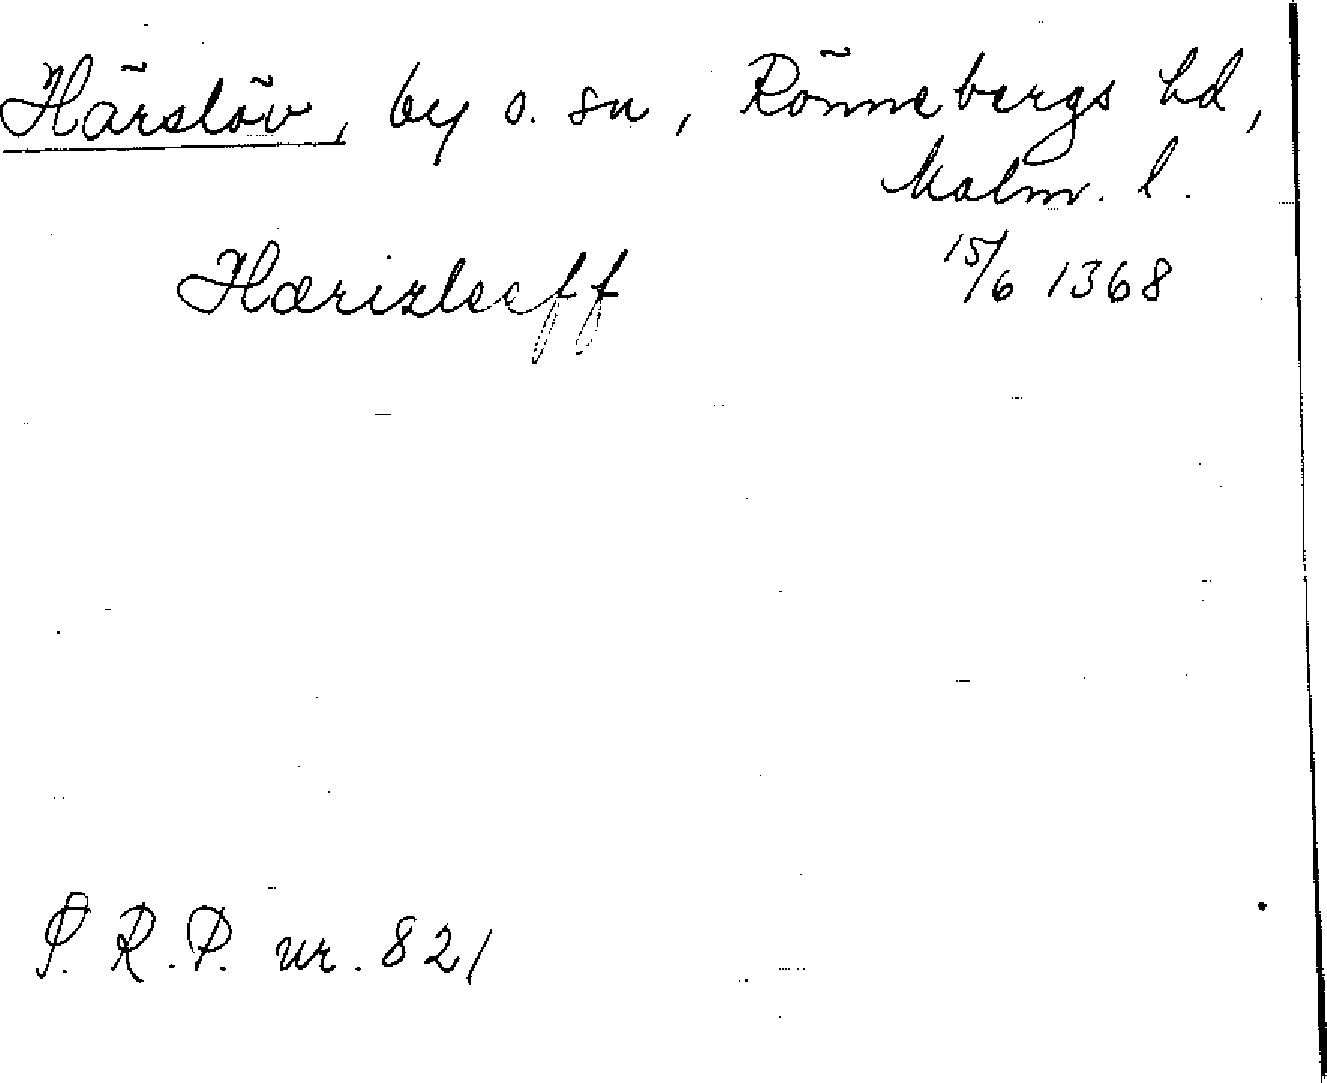 Härslöv, by o. sn, Rönnebergs hd,
Malm. l.
Hærizleeff 15/6 1368
S.R.P. nr. 821